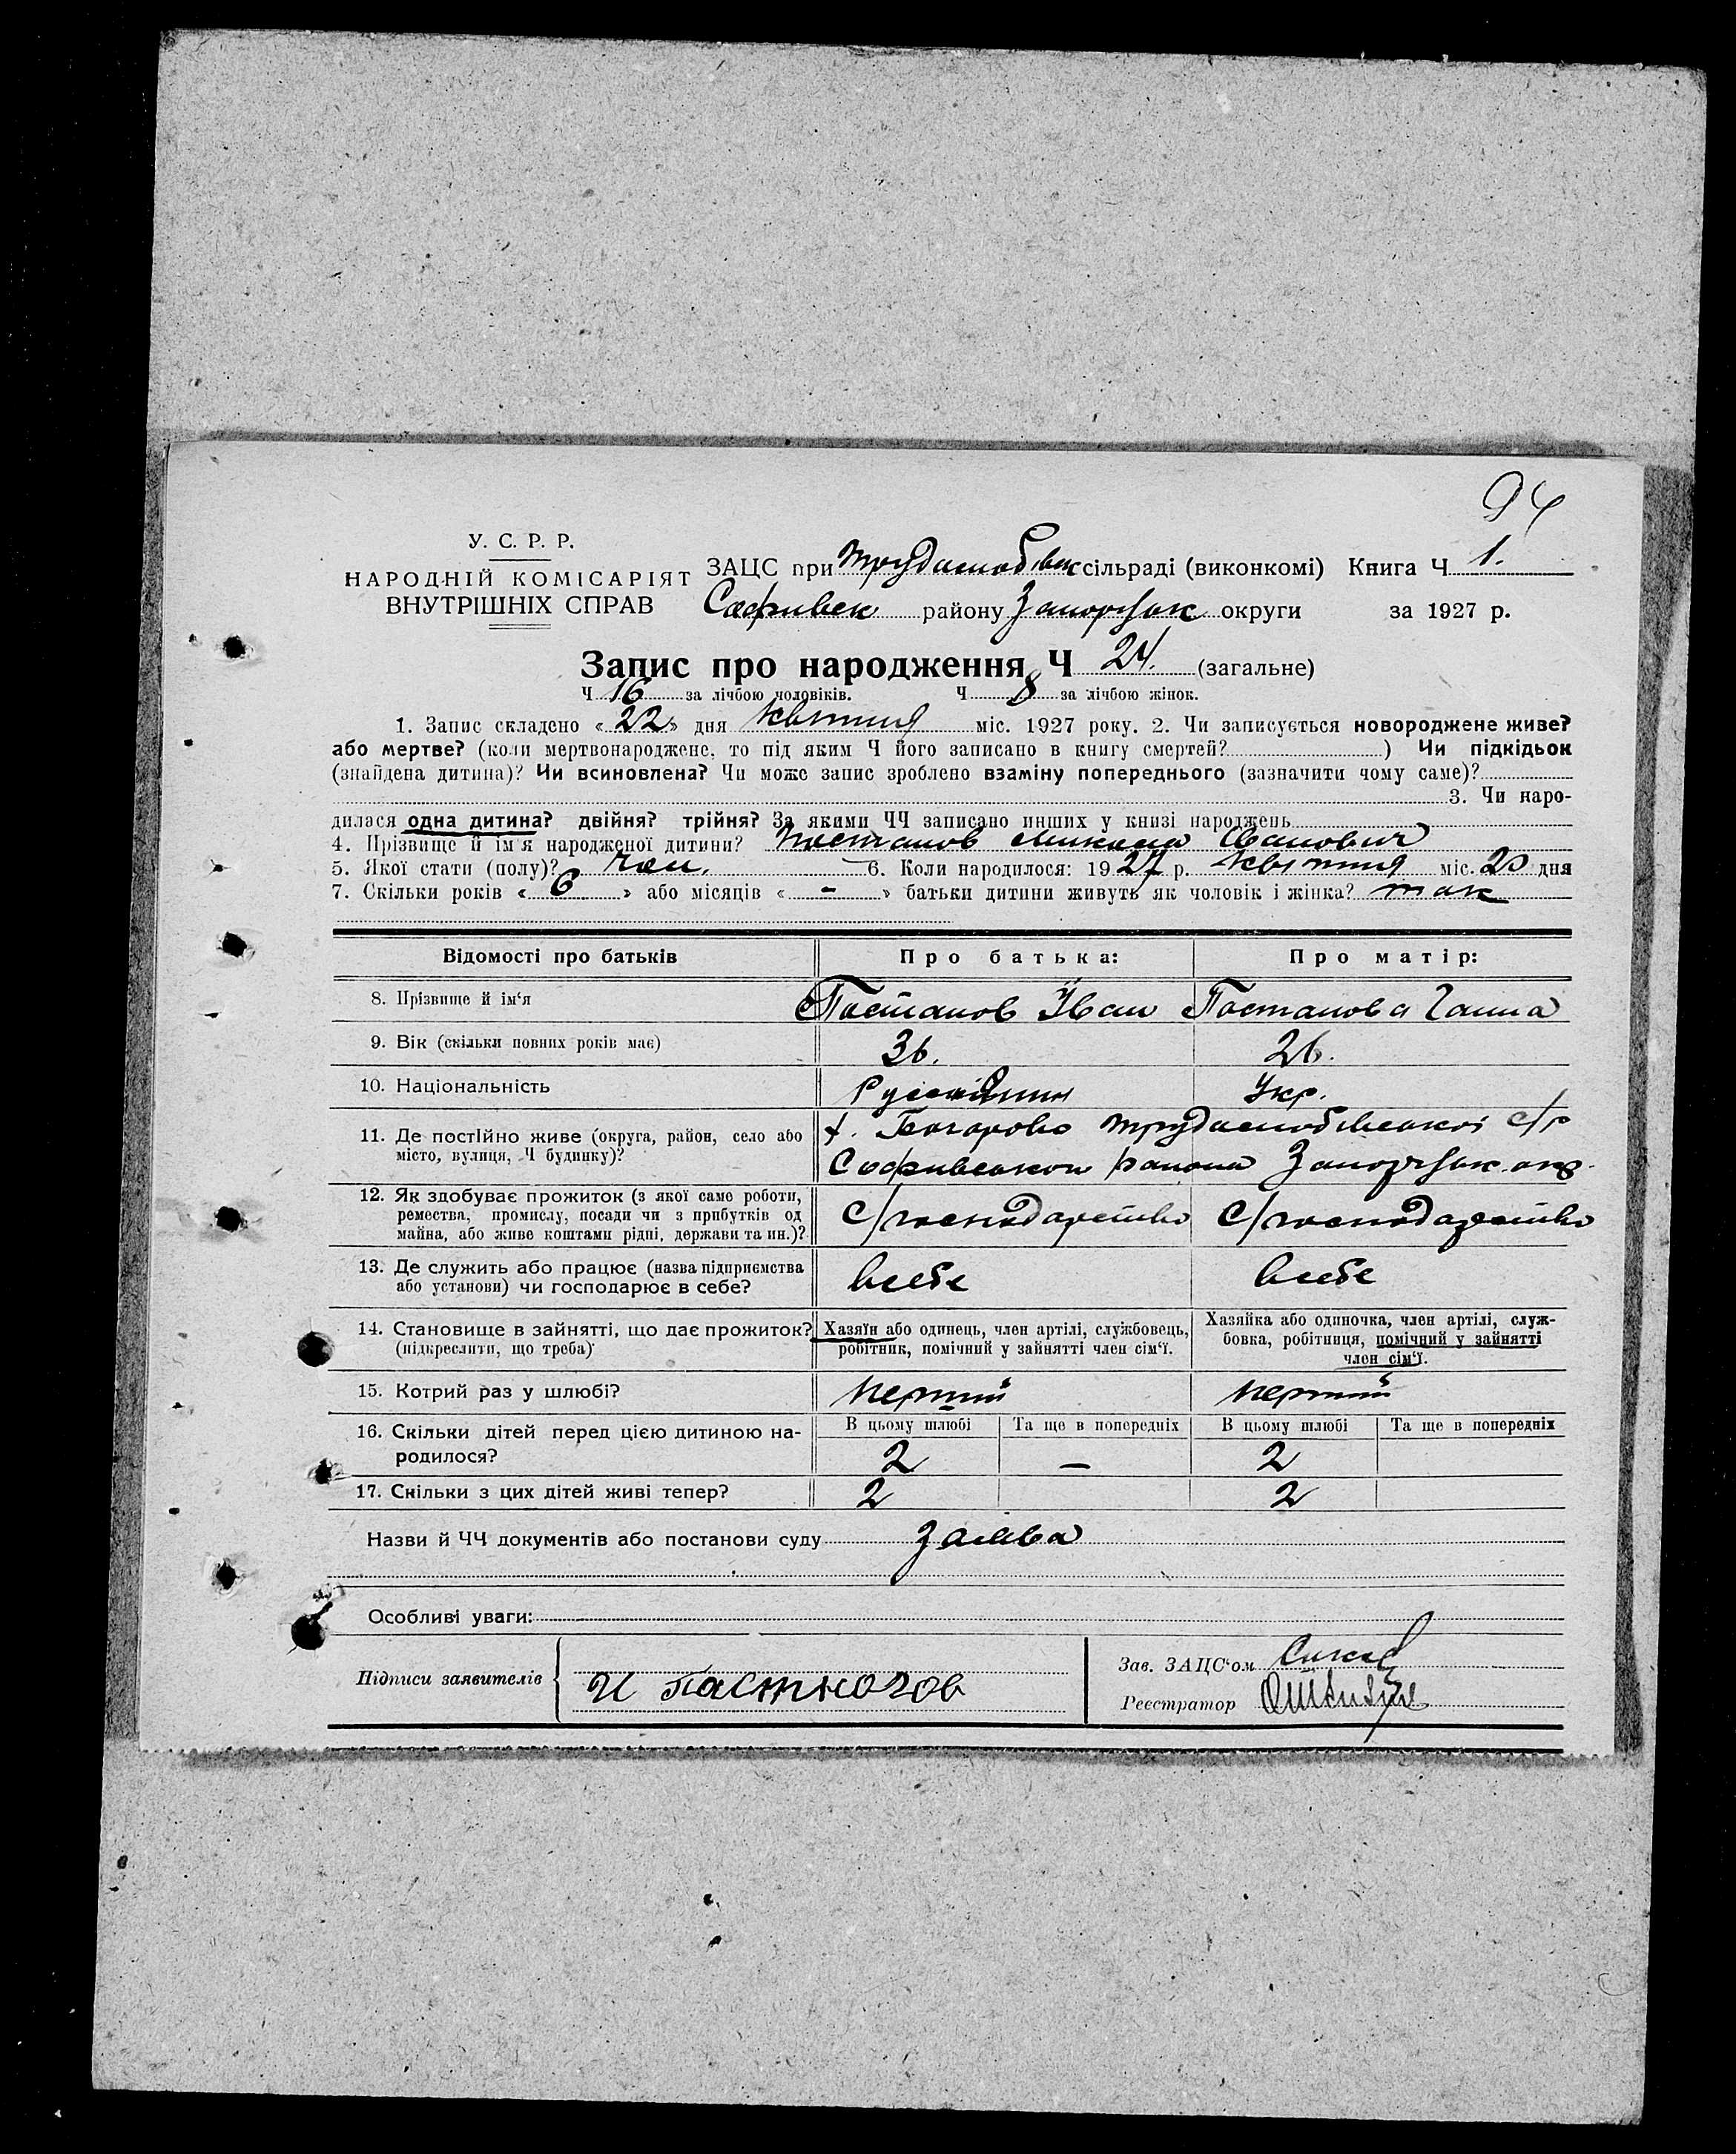 94
У. С. Р. Р.
НАРОДНІЙ КОМІСАРІЯТ
ВНУТРІШНІХ СПРАВ
ЗАЦС при Трудолюбівск сільраді (виконкомі) Книга Ч 1.
Софиевск району Запоріжск округи за 1927 р.
Запис про народження Ч 24. (загальне)
Ч 16 за лічбою чоловіків. Ч 8 за лічбою жінок.
1. Запис складено « 22 » дня квітня міс. 1927 року. 2. Чи записується новороджене живе?
або мертве? (коли мертвонароджене, то під яким Ч його записано в книгу смертей? ) Чи підкідьок
(знайдена дитина)? Чи всиновлена? Чи може запис зроблено взаміну попереднього (зазначити чому саме)?
3. Чи наро-
дилася одна дитина? двійня? трійня? За якими ЧЧ записано инших у книзі народжень
4. Прізвище й ім'я народженої дитини? Постанов Микола Іванович
5. Якої стати (полу)? чол. 6. Коли народилося: 1927 р. квітня міс. 20 дня
7. Скільки років « 6 » або місяців « - » батьки дитини живуть як чоловік і жінка? так
Відомості про батьків Про батька: Про матір:
8. Прізвище й ім'я Постанов Іван Постанова Ганна
9. Вік (скільки повних років має) 36. 26.
10. Національність Укр.
11. Де постійно живе (округа, район, село або
місто, вулиця, Ч будинку)?
х. Трудолюбівської с/р
Софиевского района Запоріжск. окр.
12. Як здобуває прожиток (з якої саме роботи,
ремества, промислу, посади чи з прибутків од
майна, або живе коштами рідні, держави та ин.)?
с/господарство с/господарство
13. Де служить або працює (назва підприємства
або установи) чи господарює в себе?
всебе всебе
14. Становище в зайнятті, що дає прожиток?
(підкреслити, що треба)
Хазяїн або одинець, член артілі, службовець,
робітник, помічний у зайнятті член сім'ї.
Хазяйка або одиночка, член артілі, служ-
бовка, робітниця, помічний у зайнятті
член сім'ї.
15. Котрий раз у шлюбі? перший перший
16. Скільки дітей перед цією дитиною на-
родилося?
В цьому шлюбі Та ще в попередніх В цьому шлюбі Та ще в попередніх
2 — 2
17. Скільки з цих дітей живі тепер? 2 2
Назви й ЧЧ документів або постанови суду заява
Особливі уваги:
Підписи заявителів И
Зав. ЗАЦС'ом
Реєстратор